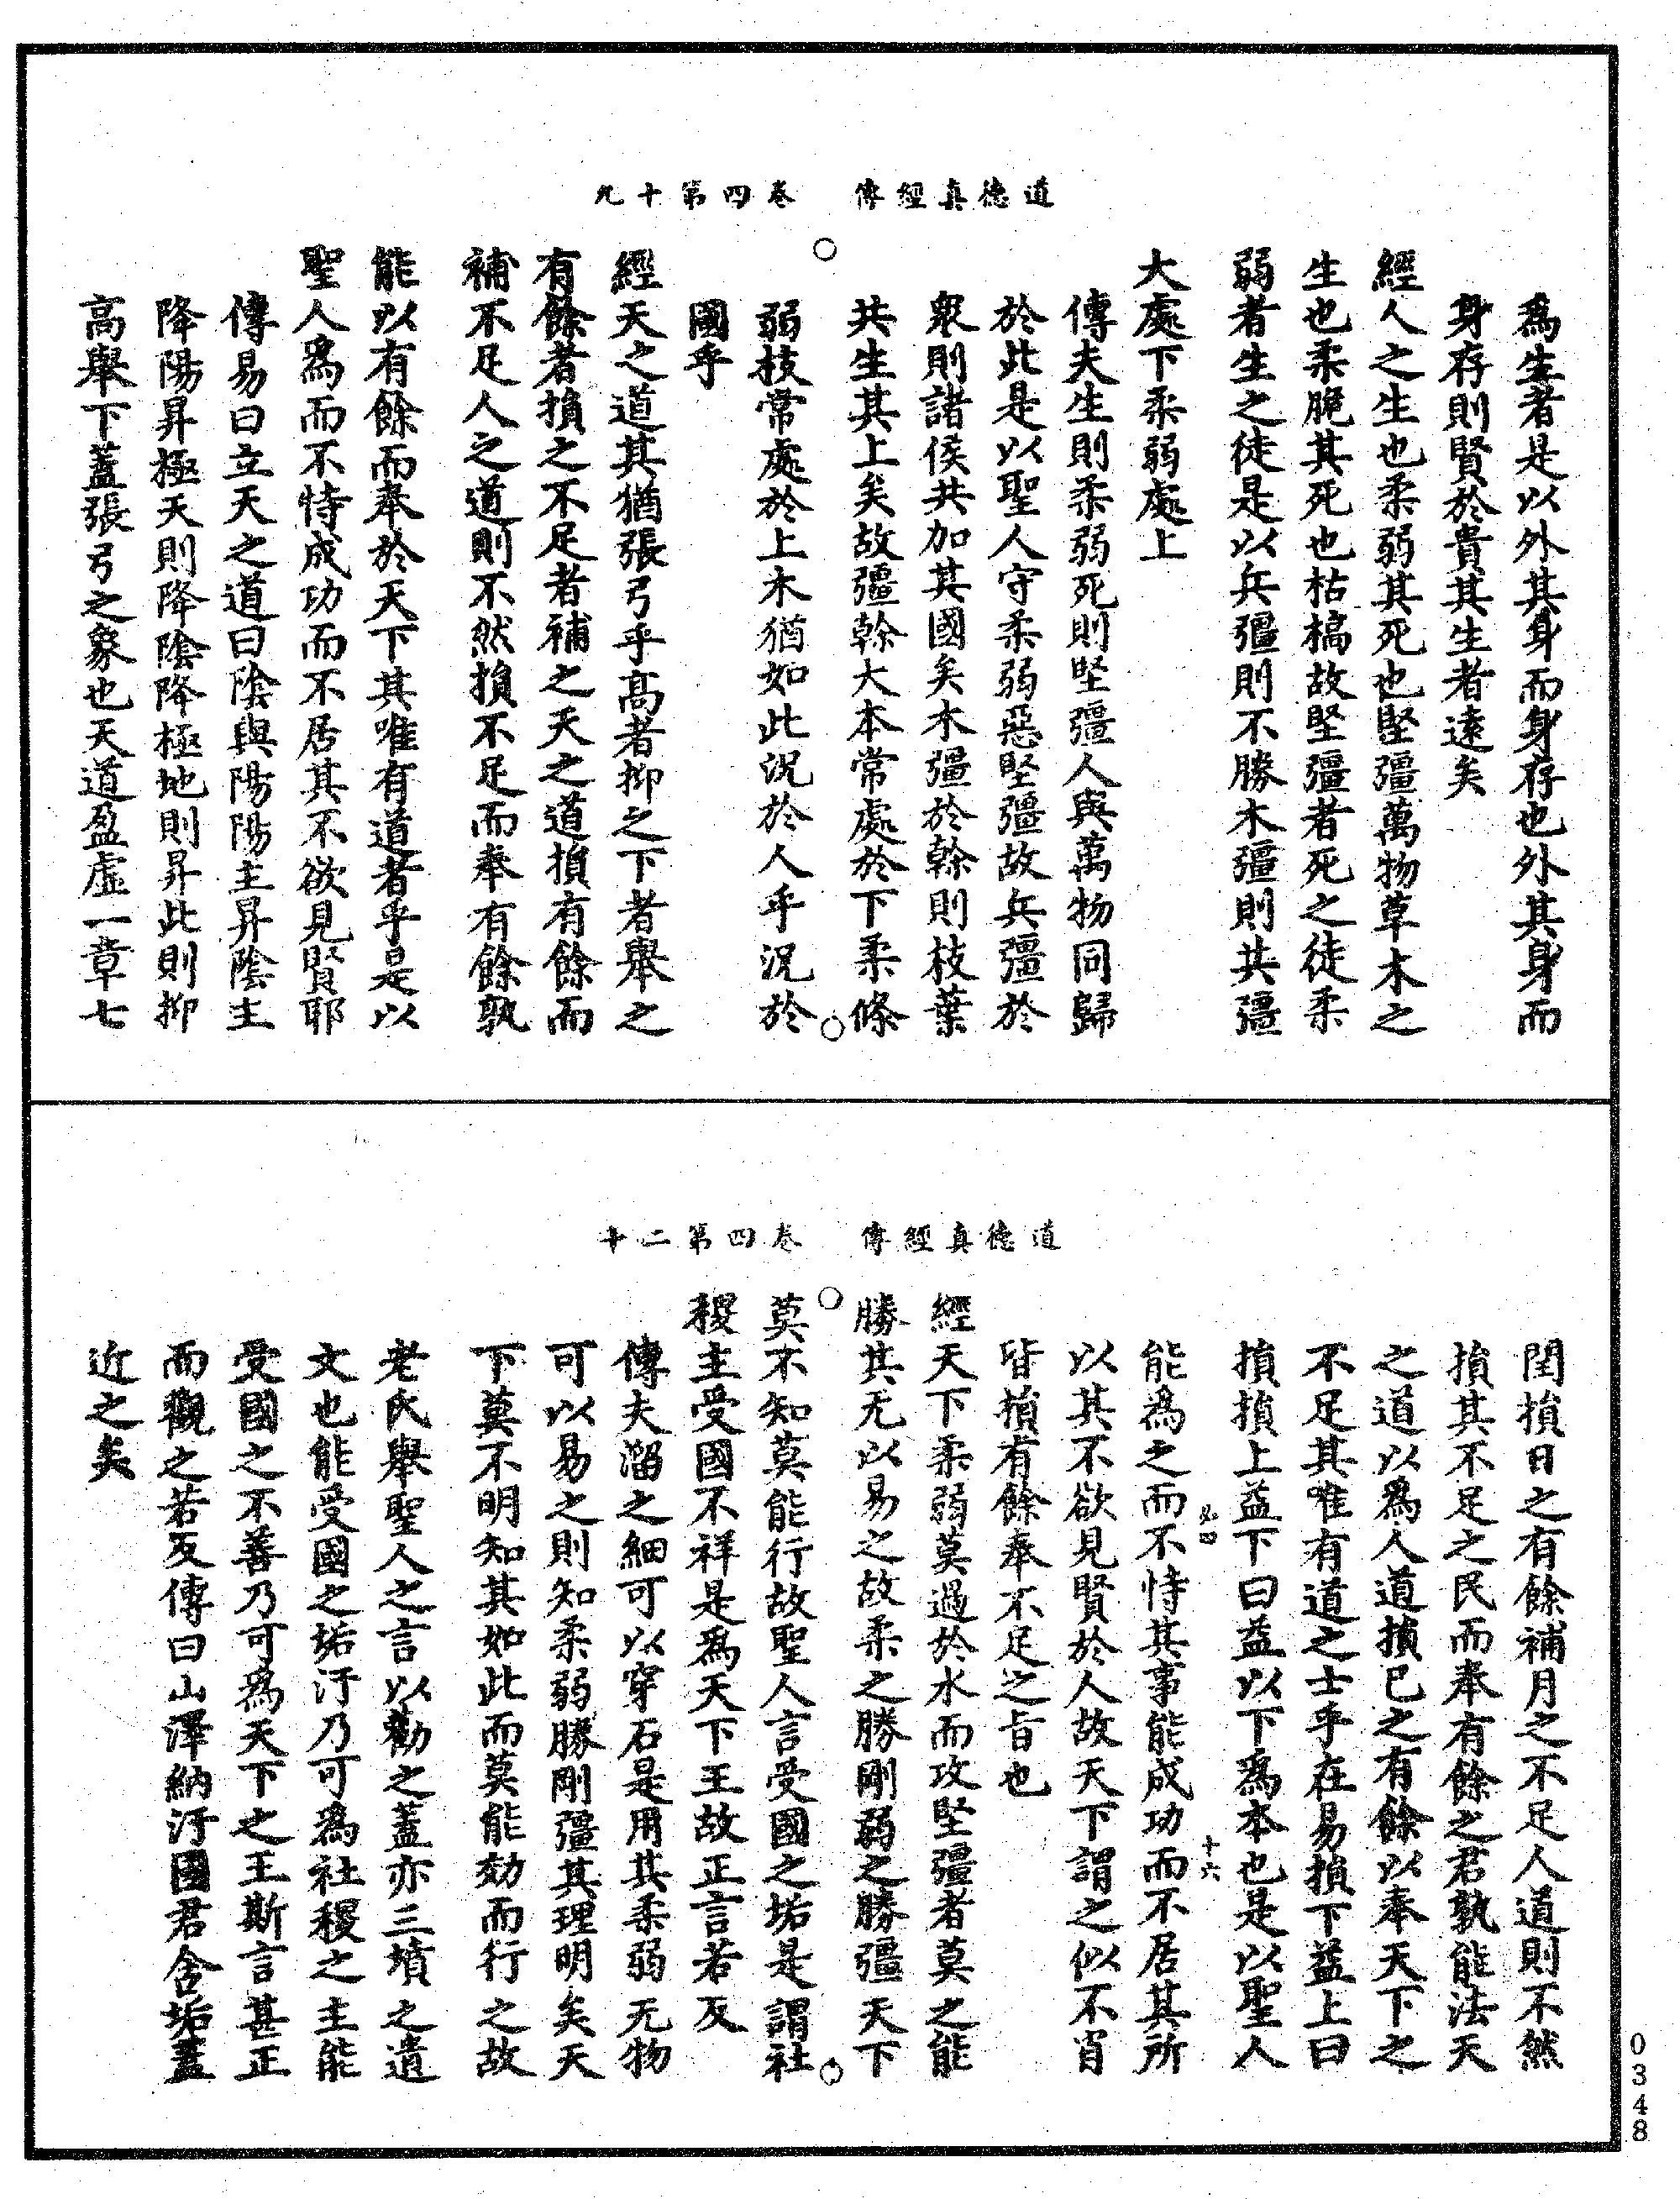 道德真經傳　卷四第十九
爲生者是以外其身而身存也外其身而
身存則賢於貴其生者遠矣
經人之生也柔弱其死也堅彊萬物草木之
生也柔脆其死也枯槁故堅彊者死之徒柔
弱者生之徒是以兵彊則不勝木彊則共彊
大處下柔弱處上
傳夫生則柔弱死則堅彊人與萬物同歸
於此是以聖人守柔弱惡堅彊故兵彊於
衆則諸侯共加其國矣木彊於榦則枝葉
共生其上矣故彊榦大本常處於下柔條
弱枝常處於上木猶如此況於人乎況於
國乎
經天之道其猶張弓乎高者抑之下者舉之
有餘者損之不足者補之天之道損有餘而
補不足人之道則不然損不足而奉有餘孰
能以有餘而奉於天下其唯有道者乎是以
聖人爲而不恃成功而不居其不欲見賢耶
傳易曰立天之道曰陰與陽陽主昇陰主
降陽昇極天則降陰降極地則昇此則抑
高舉下蓋張弓之象也天道盈虛一章七
道德真經傳　卷四第二十
閏損日之有餘補月之不足人道則不然
損其不足之民而奉有餘之君孰能法天
之道以爲人道損已之有餘以奉天下之
不足其唯有道之士乎在易損下益上曰
損損上益下曰益以下爲本也是以聖人
必四　十六
能爲之而不恃其事能成功而不居其所
以其不欲見賢於人故天下謂之似不肖
皆損有餘奉不足之旨也
經天下柔弱莫過於水而攻堅彊者莫之能
勝其无以易之故柔之勝剛弱之勝彊天下
莫不知莫能行故聖人言受國之垢是謂社
稷主受國不祥是爲天下王故正言若反
傳夫溜之細可以穿石是用其柔弱无物
可以易之則知柔弱勝剛彊其理明矣天
下莫不明知其如此而莫能効而行之故
老氏舉聖人之言以勸之蓋亦三墳之遺
文也能受國之垢汙乃可爲社稷之主能
受國之不善乃可爲天下之王斯言甚正
而觀之若反傳曰山澤納汙國君含垢蓋
近之矣
0348